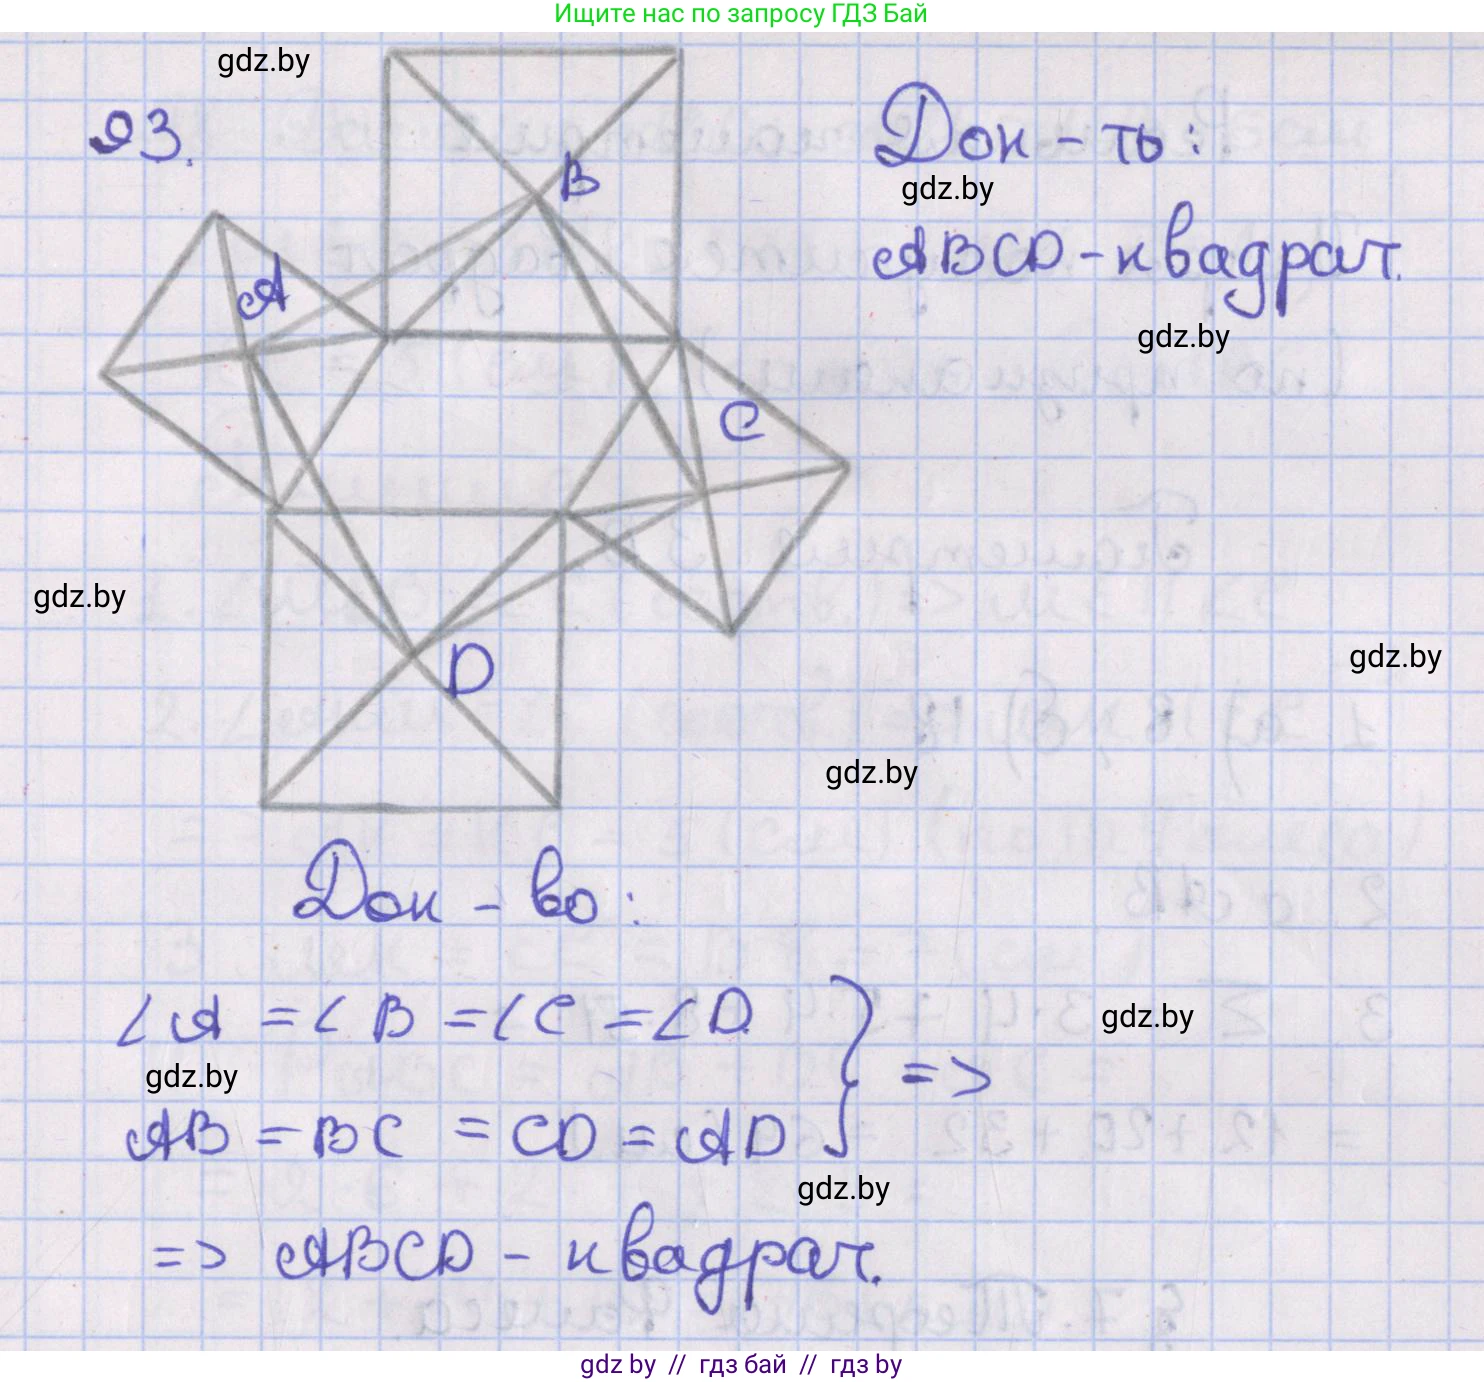 Ищите нас по запросу ГДЗ Бай
gdz.by
93.
Док - ть:
gdz.by
B
ABCD - квадрат.
A
gdz.by
C
gdz.by
gdz.by
D
gdz.by
Док - во:
∠A = ∠B = ∠C = ∠D
gdz.by
gdz.by
=>
AB = BC = CD = AD
gdz.by
=> ABCD - квадрат.
gdz.by // гдз бай // гдз by